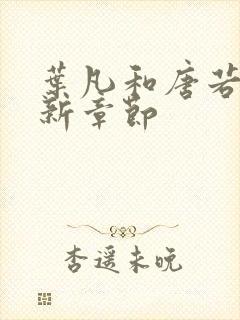 葉凡和唐若
新章節
杏遥未晚